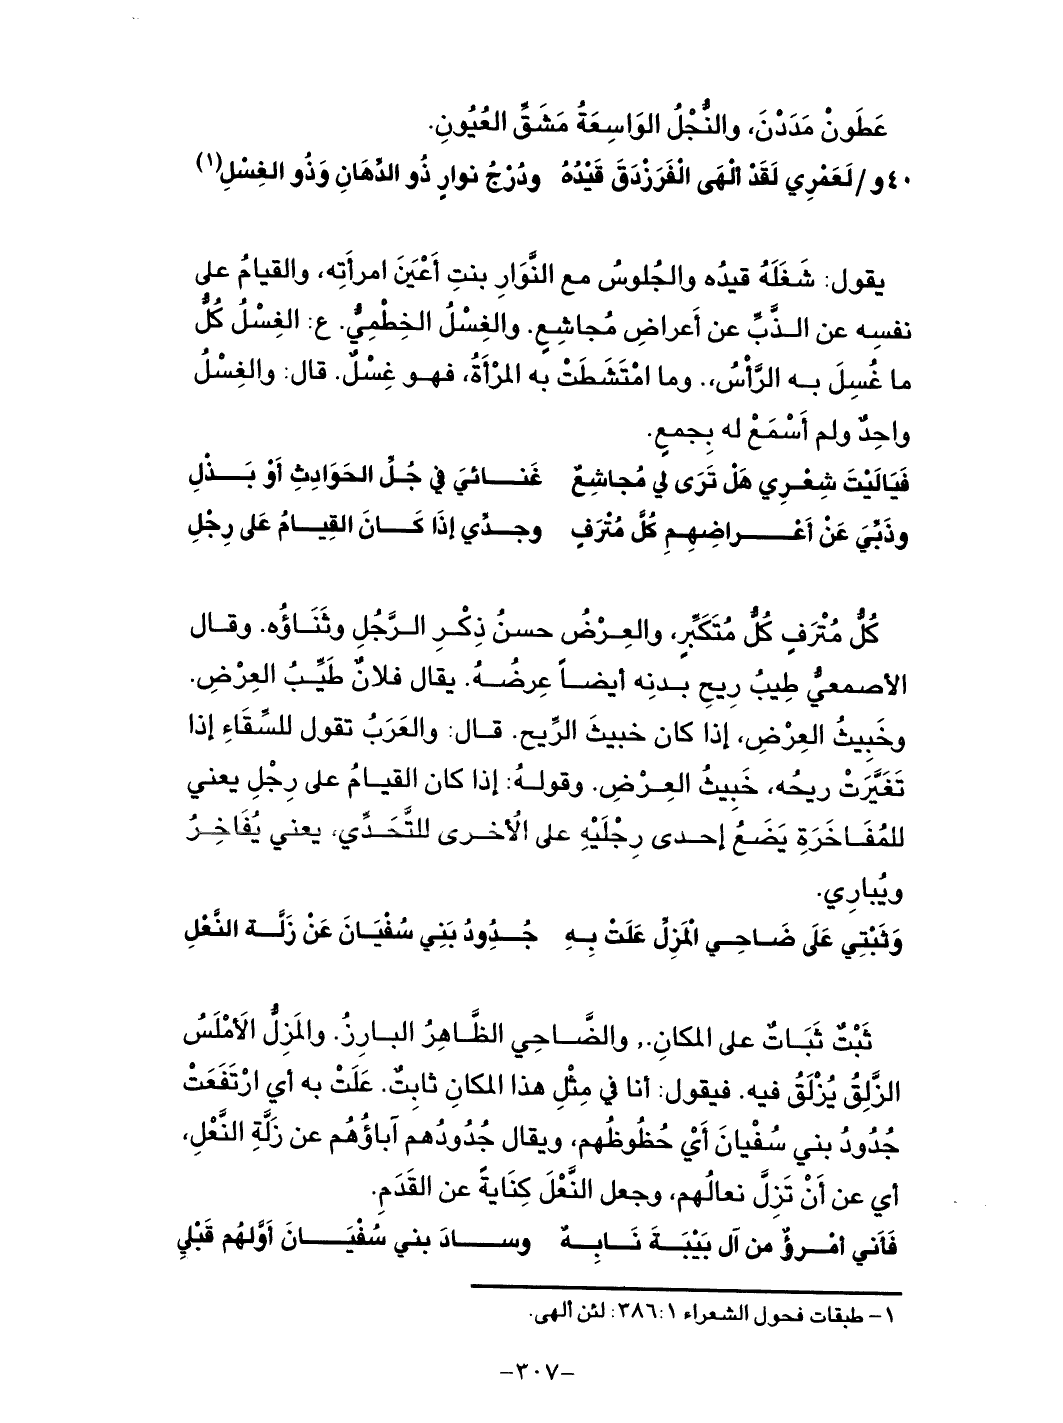 عَطَونْ مَدَدْنَ، والنُّجْلُ الوَاسِعَةُ مَشَقِّ العُيُونِ.
٤٠و/لَعَمْرِي لَقَدْ ألْهَى الْفَرَزْدَقَ قَيْدُهُ    ودُرْجُ نوارٍ ذُو الدِّهَانِ وَذُو الغِسْلِ(١)
يقول: شَغَلَهُ قيدُه والجُلوسُ مع النَّوَارِ بنتِ أعْيَنَ امرأتِه، والقيامُ على
نفسِه عن الذَّبِّ عن أعراضِ مُجاشِعٍ. والغِسْلُ الخِطْمِيُّ. ع: الغِسْلُ كُلُّ
ما غُسِلَ به الرَّأْسُ،. وما امْتَشَطَتْ به المرْأةُ، فهو غِسْلٌ. قال: والغِسْلُ
واحِدٌ ولم أَسْمَعْ له بِجمعٍ.
فَيَالَيْتَ شِعْرِي هَلْ تَرَى لي مُجاشِعٌ    غَنائيَ في جُلِّ الحَوَادِثِ أوْ بَذْلِ
وذَبِّيَ عَنْ أعْراضِهِمِ كُلَّ مُتْرَفٍ    وجدِّي إذَا كَانَ القِيامُ عَلى رِجْلِ
كُلُّ مُتْرَفٍ كُلُّ مُتَكَبِّرٍ، والعِرْضُ حسنُ ذِكْرِ الرَّجُلِ وثَنَاؤُه. وقال
الأصمعيُّ طِيبُ رِيحِ بدنِه أيضاً عِرضُهُ. يقال فلانٌ طَيِّبُ العِرْضِ.
وخَبِيثُ العِرْضِ، إذا كان خبيثَ الرِّيحِ. قال: والعَرَبُ تقول للسِّقَاءِ إذا
تَغَيَّرَتْ ريحُه، خَبِيثُ العِرْضِ. وقولهُ: إذا كان القيامُ على رِجْلِ يعني
للمُفَاخَرَةِ يَضَعُ إحدى رِجْلَيْهِ على الأخرى للتَّحَدِّي، يعني يُفَاخِرُ
ويُبارِي.
وَثَبْتِي عَلَى ضَاحِي الْمَزِلِّ عَلَتْ بِهِ    جُدُودُ بَنِي سُفْيَانَ عَنْ زَلَّة النَّعْلِ
ثَبْتٌ ثَبَاتٌ على المكانِ., والضَّاحِي الظَّاهِرُ البارِزُ. والمَزِلُّ الأَمْلَسُ
الزَّلِقُ يُزْلَقُ فيه. فيقول: أنا في مِثْلِ هذا المكان ثابتٌ. عَلَتْ به أي ارْتَفَعَتْ
جُدُودُ بني سُفْيانَ أيْ حُظُوظُهم، ويقال جُدُودُهم آباؤُهُم عن زَلَّةِ النَّعْلِ،
أي عن أنْ تَزِلَّ نعالُهم، وجعل النَّعْلَ كِنَايةً عن القَدَمِ.
فَأني أمْرؤٌ من آل بَيْبَةَ نَابِهٌ    وسادَ بني سُفْيَانَ أوَّلهُم قَبْلِي
١- طبقات فحول الشعراء ٣٨٦:١: لئن ألهى.
-٣٠٧-